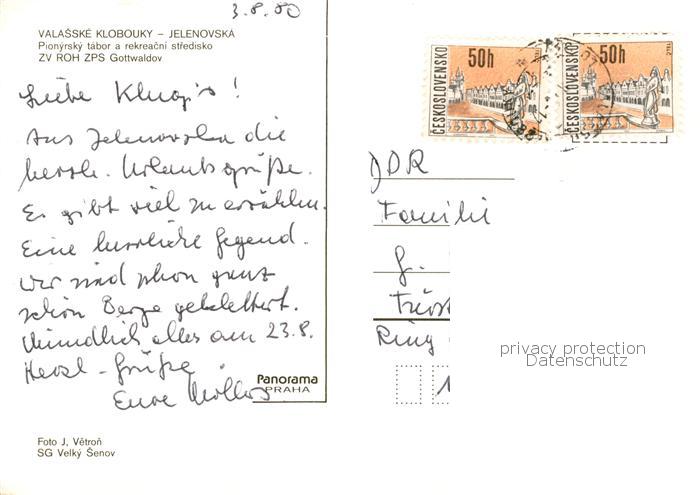 3.8.80
VALAŠSKÉ KLOBOUKY – JELENOVSKÁ
Pionýrský tábor a rekreační středisko
ZV ROH ZPS Gottwaldov
Liebe Klug's!
Aus Jelenovska die
herzl. Urlaubsgrüße.
Es gibt viel zu erzählen.
Eine herrliche Gegend.
Wir sind schon ganz
schön Berge geklettert.
Mündlich alles am 23.8.
Herzl. Grüße
Eure
Panorama
PRAHA
Foto J, Větroň
SG Velký Šenov
ČESKOSLOVENSKO
50h
TELČ
ČESKOSLOVENSKO
50h
TELČ
DDR
Famili
G.
Fürst
Ring
1
privacy protection
Datenschutz